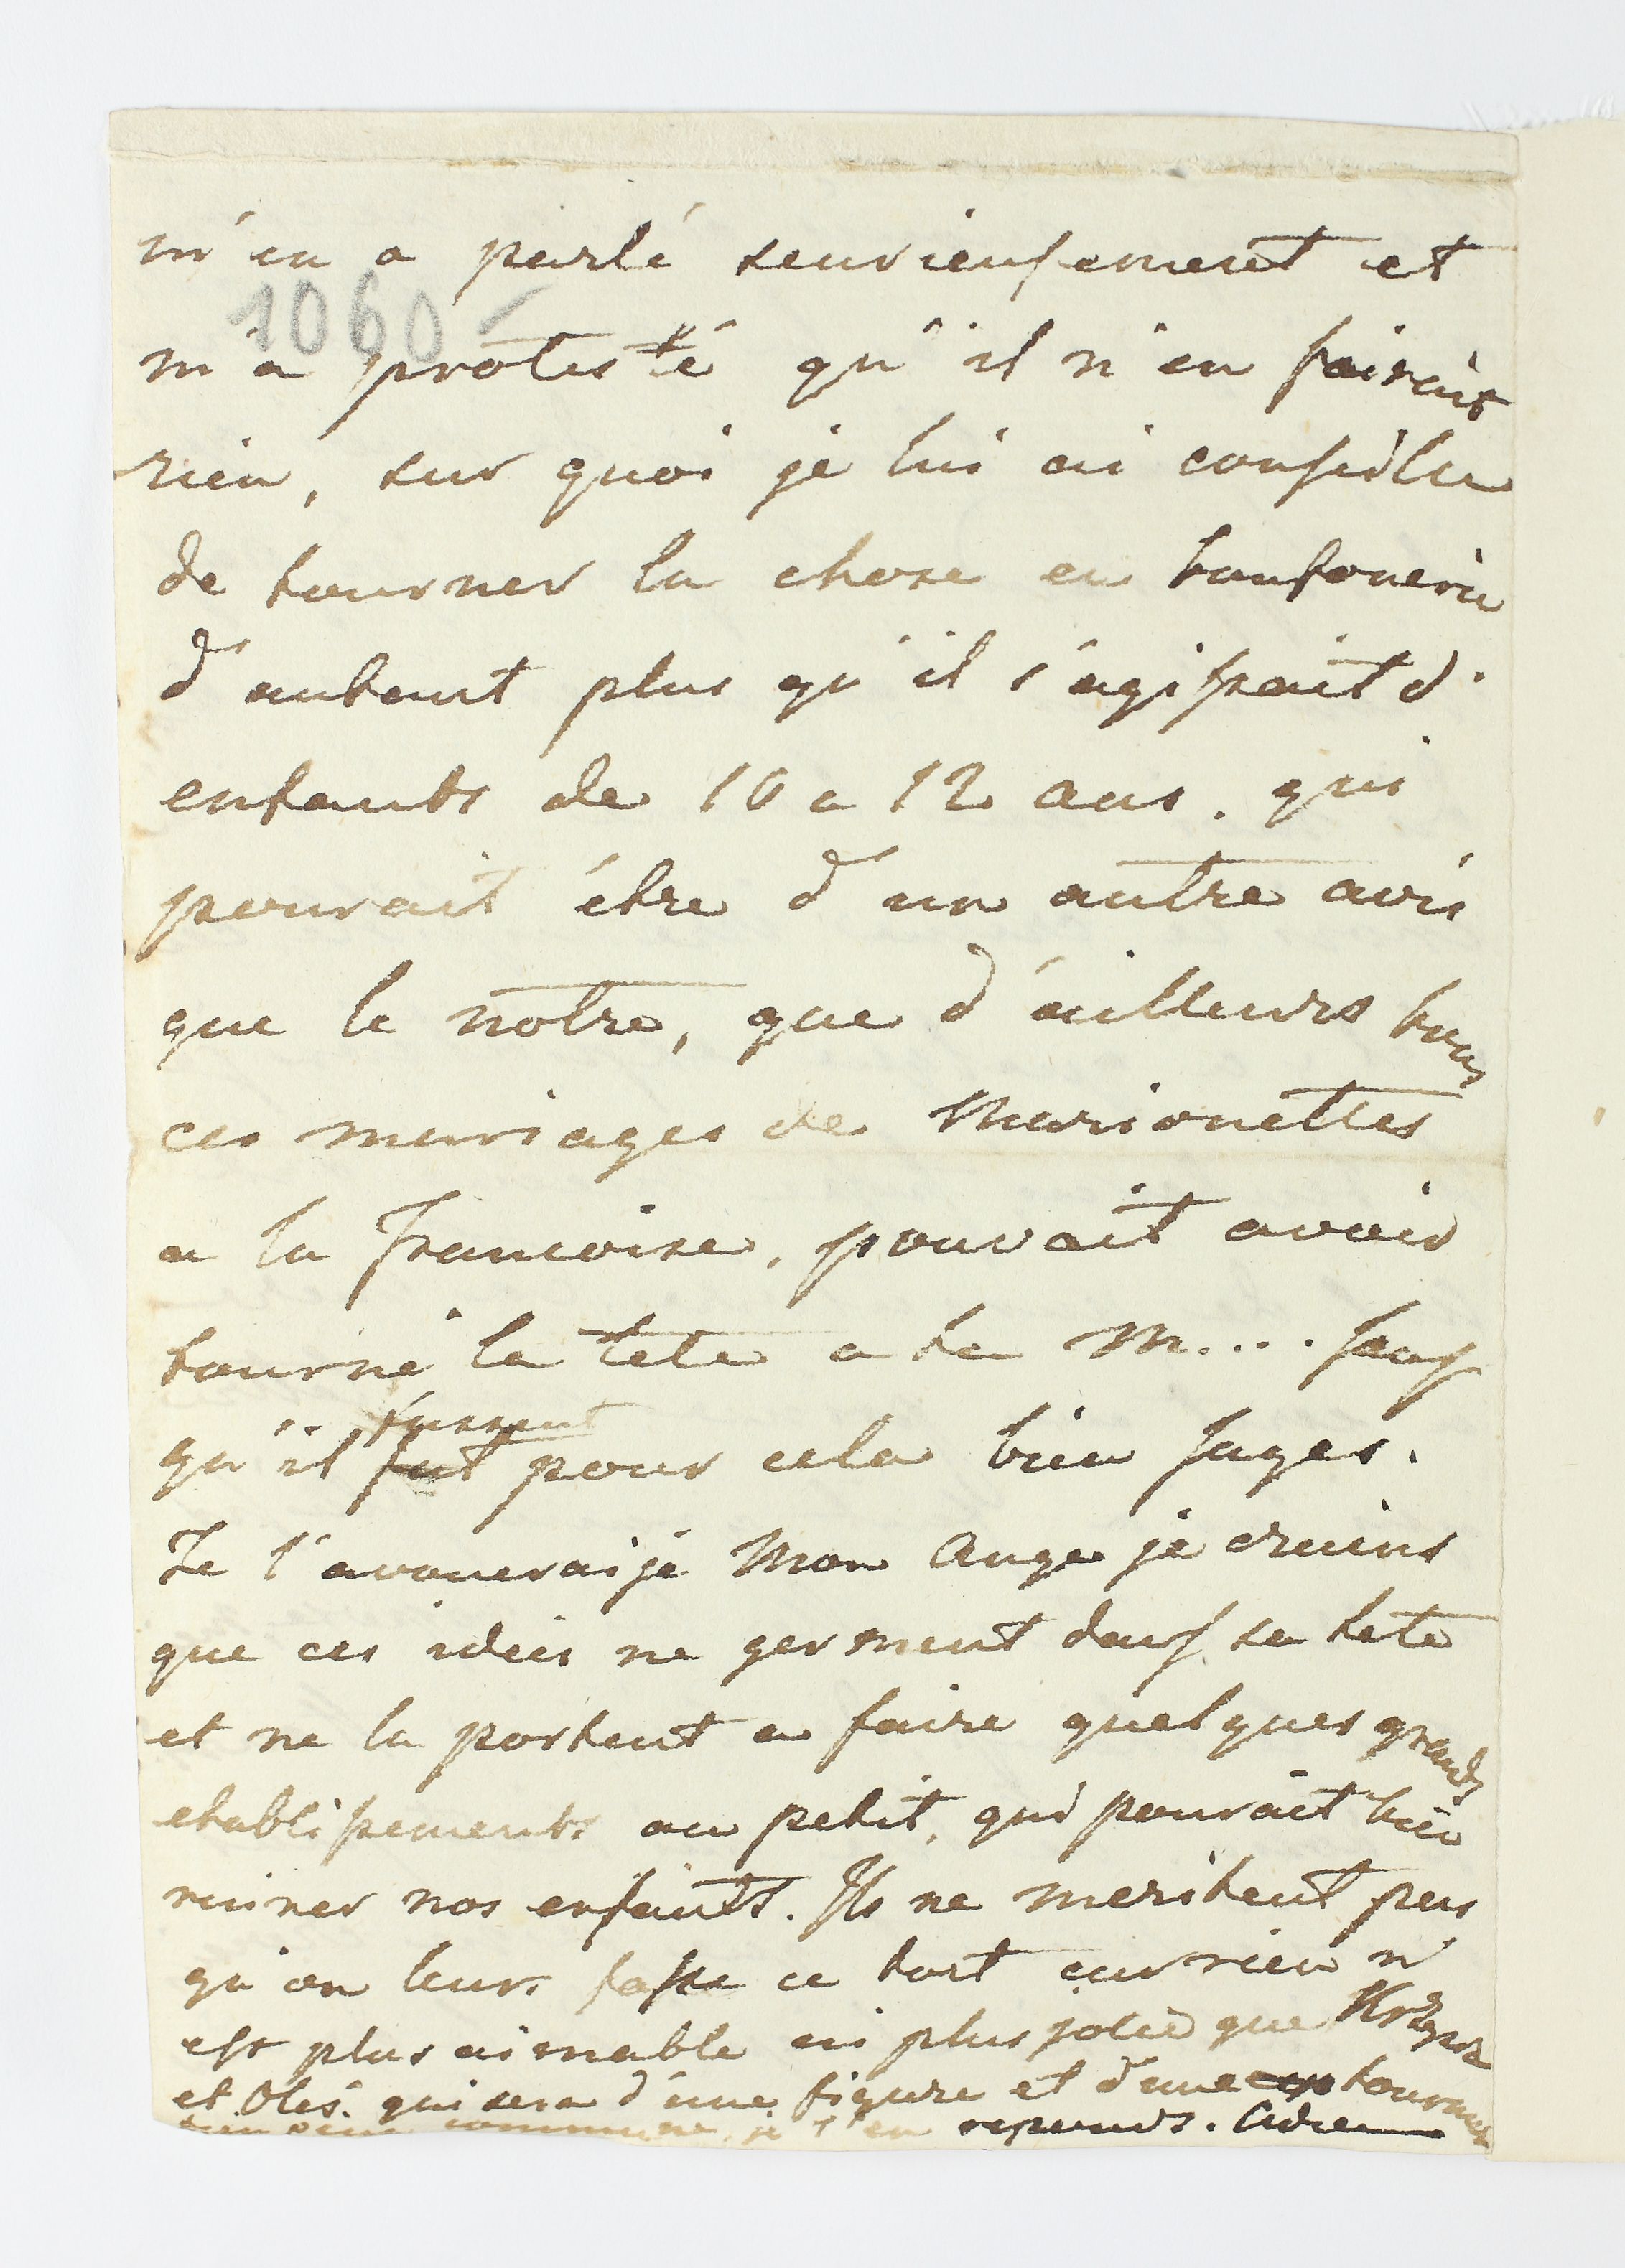 m'en a parlé seurieusement et
1060
m'a protesté qu'il n'en faisait
rien, sur quoi je lui ai conseiller
de tourner la chose en boufonerie
d'autant plus qu'il s'agissait d'
enfants de 10 a 12 ans. qui
pouvait être d'un autre avis
que le notre, que d'ailleurs tous
ces mariages de Marionettes
a la Francoise, pouvait avoir
tourné la tete a ta M.... sans
fussent
qu'il fut pour cela bien sages.
Te l'avouerai je Mon Ange je crains
que ces idées ne germent dans sa tete
et ne la portent a faire quelques grands
etablissements au petit, qui pouvait bien
ruiner nos enfants. Ils ne meritent pas
qu'on leurs fasse ce tort car rien n'
est plus aimable ni plus jolie que
et Oles. qui sera d'une figure et d'une tournure
commune, je t'en reponds. Adieu